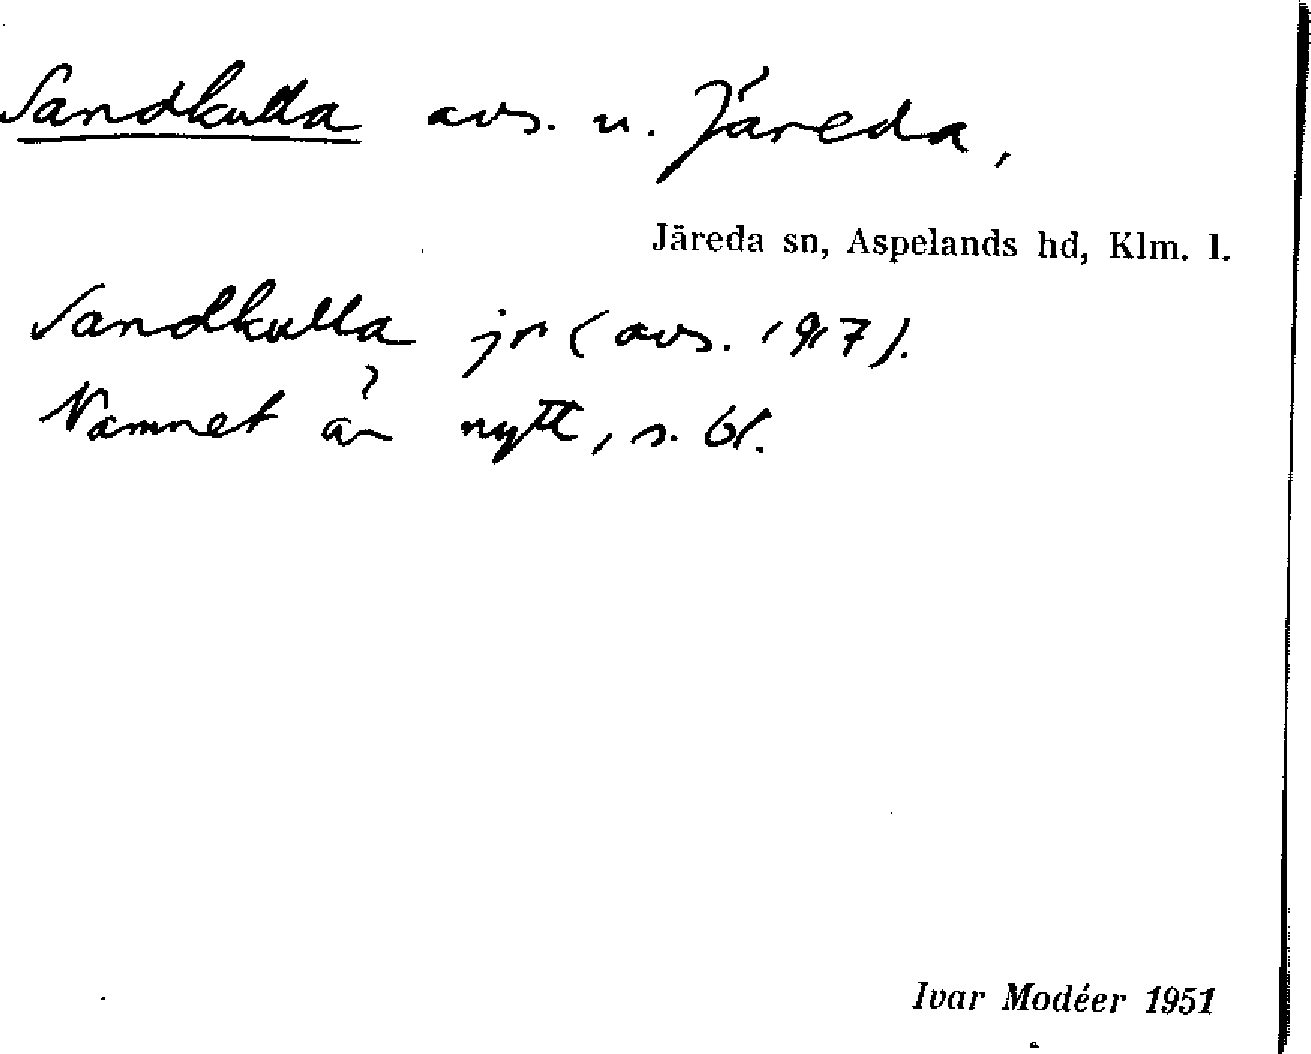 Sandkulla avs. u. Järeda,
Järeda sn, Aspelands hd, Klm. l.
Sandkulla jr (avs. 1917).
Namnet är nytt, s. bl.
Ivar Modéer 1951